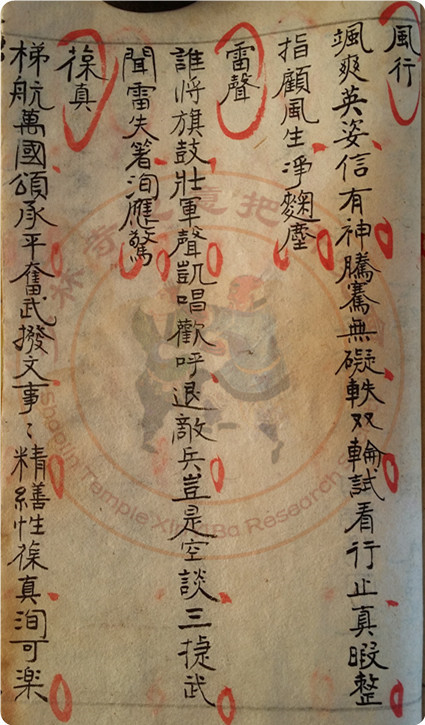 風行
颯爽英姿信有神騰騫無礙軼双輪試看行止真暇整
指顧風生淨麴塵
雷聲
誰將旗鼓壯軍聲凱唱歡呼退敵兵豈是空談三捷武
聞雷失箸洵應驚
葆真
梯航萬國頌承平奮武撥文事〻精繕性葆真洵可楽
Shaolin Temple Xin Yi Ba Research